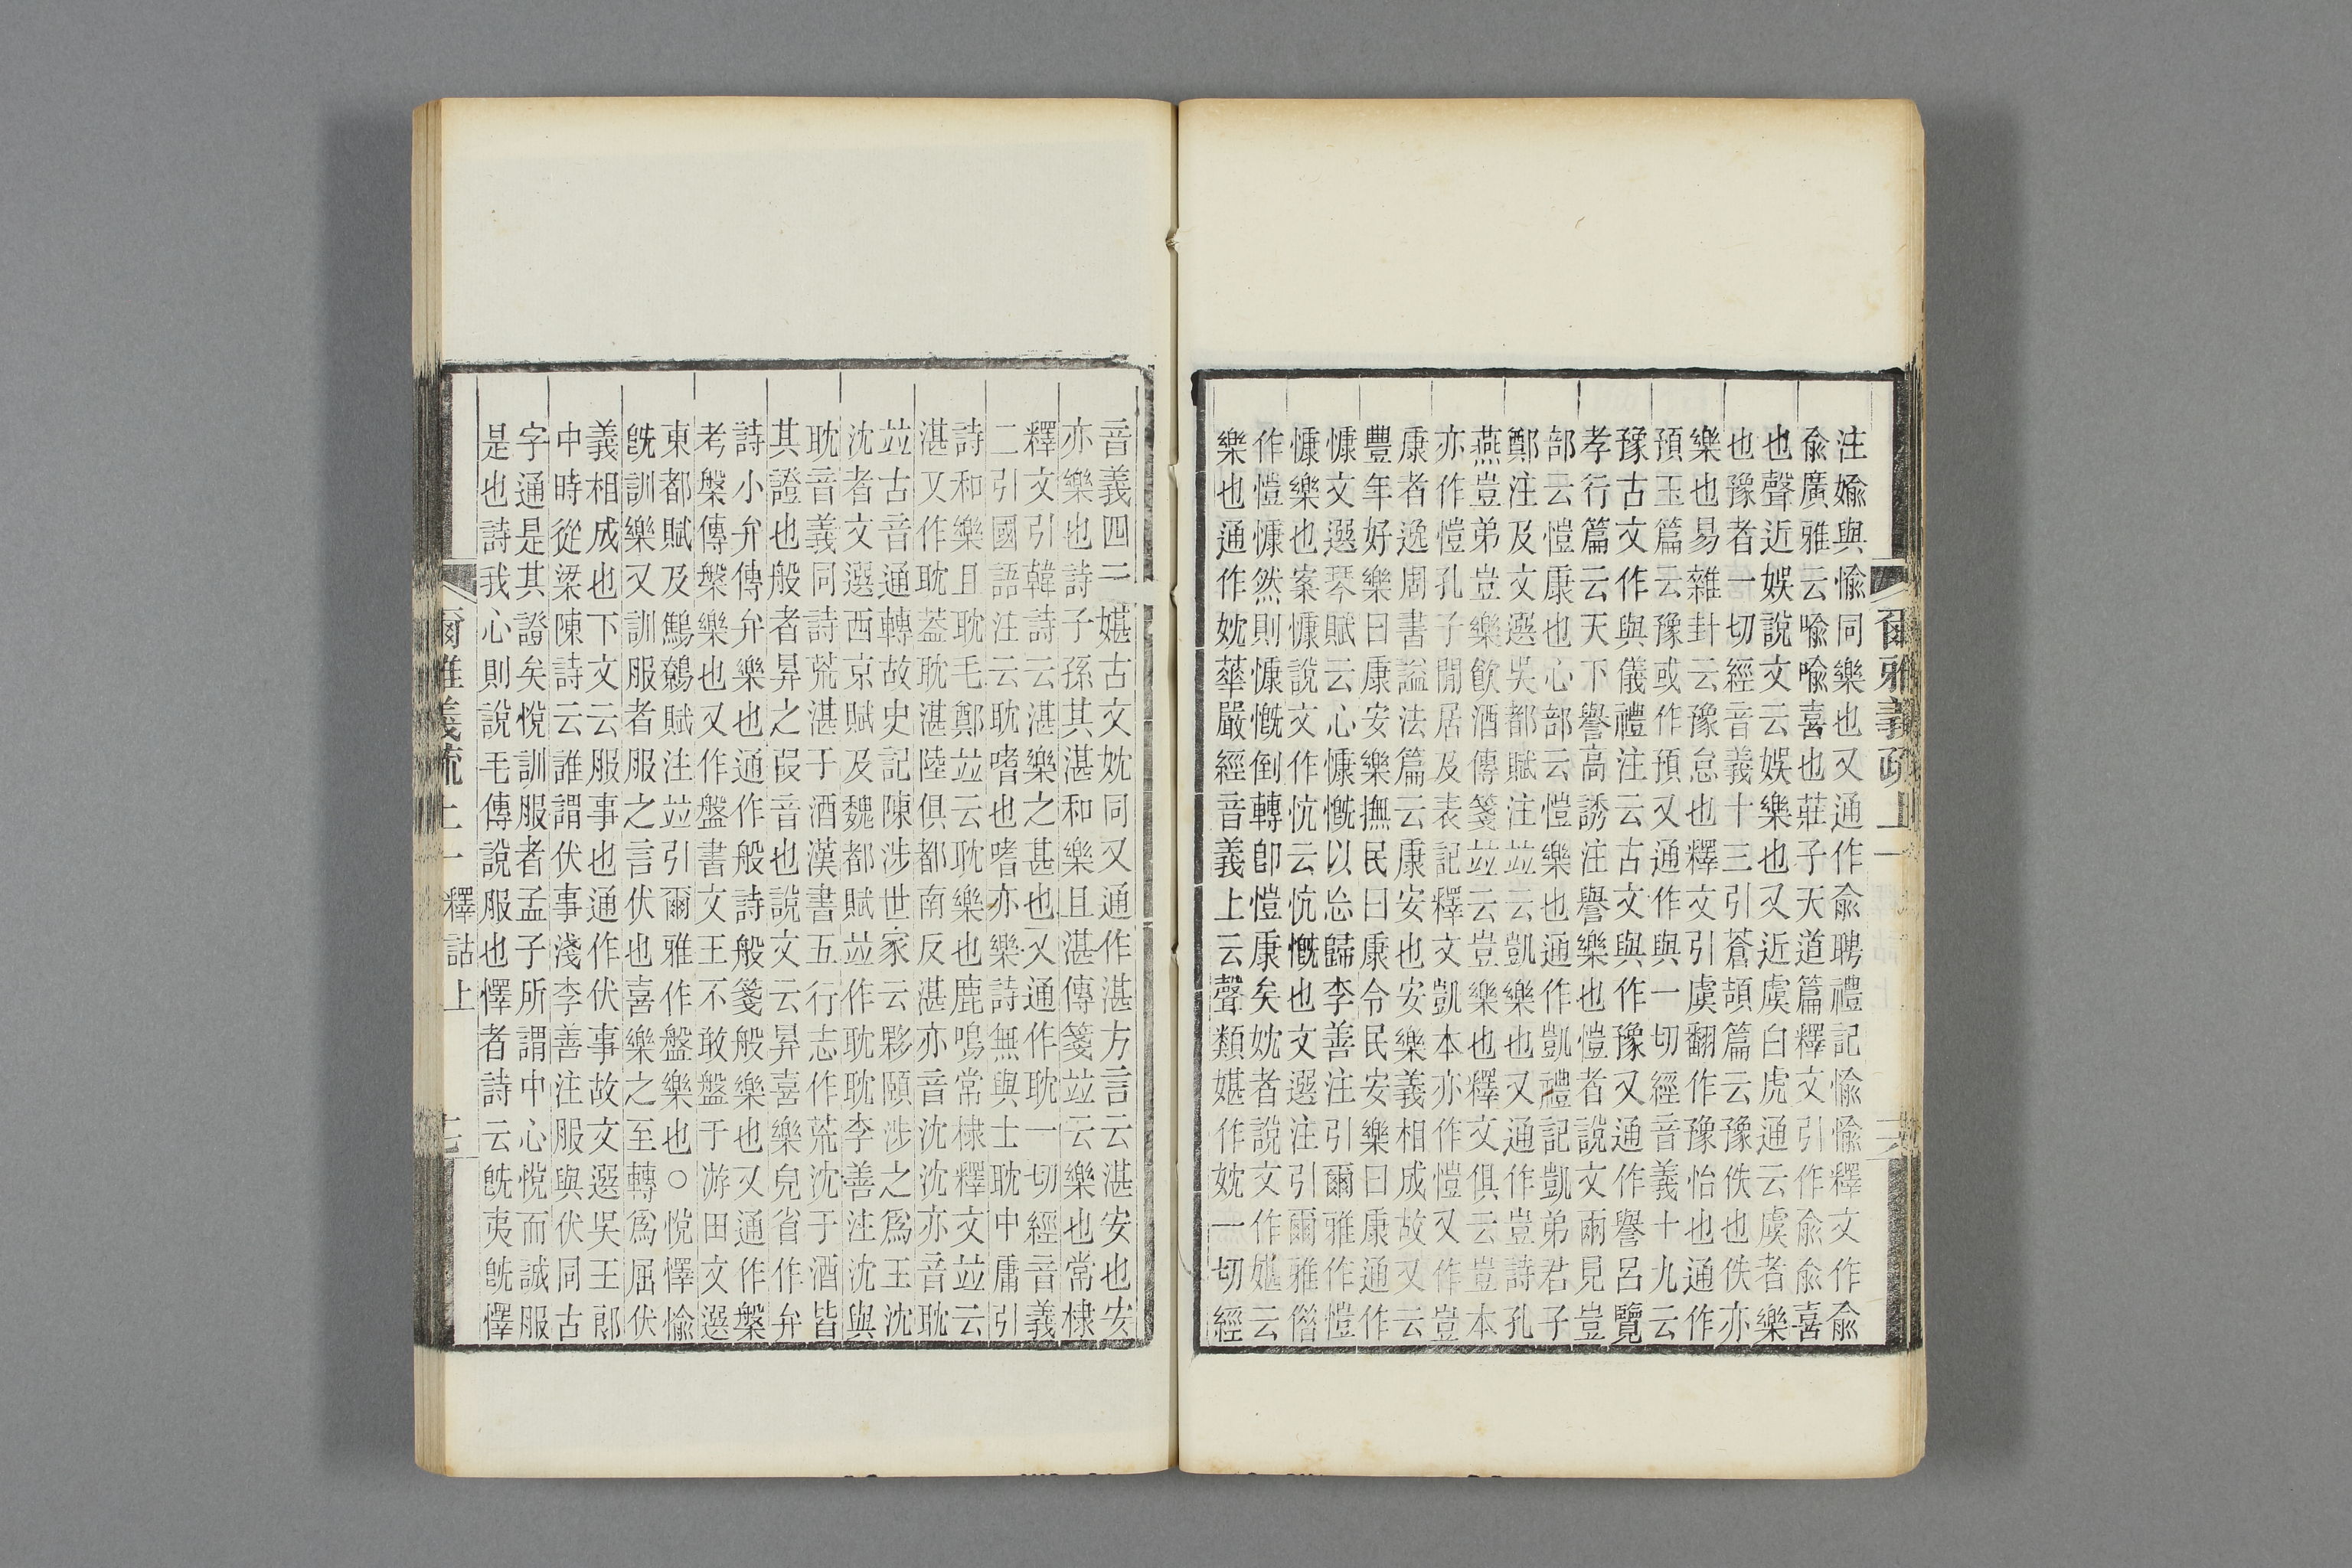 注婾與愉同樂也又通作兪聘禮記愉愉釋文作兪
兪廣雅云喻喻喜也莊子天道篇釋文引作兪兪喜
也聲近娛說文云娛樂也又近虞白虎通云虞者樂
也豫者一切經音義十三引蒼頡篇云豫佚也佚亦
樂也易雜卦云豫怠也釋文引虞翻作豫怡也通作
預玉篇云豫或作預又通作與一切經音義十九云
豫古文作與儀禮注云古文與作豫又通作譽呂覽
孝行篇云天下譽高誘注譽樂也愷者說文兩見豈
部云愷康也心部云愷樂也通作凱禮記凱弟君子
鄭注及文選吳都賦注竝云凱樂也又通作豈詩孔
燕豈弟豈樂飮酒傳箋竝云豈樂也釋文俱云豈本
亦作愷孔子閒居及表記釋文凱本亦作愷又作豈
康者逸周書謚法篇云康安也安樂義相成故又云
豐年好樂曰康安樂撫民曰康令民安樂曰康通作
慷文選琴賦云心慷慨以忘歸李善注引爾雅作愷
慷樂也案慷說文作忼云忼慨也文選注引爾雅偕
作愷慷然則慷慨倒轉卽愷康矣妉者說文作媅云
樂也通作妉華嚴經音義上云聲類媅作妉一切經
爾雅義疏上一
音義四云媅古文妉同又通作湛方言云湛安也安
亦樂也詩子孫其湛和樂且湛傳箋竝云樂也常棣
釋文引韓詩云湛樂之甚也又通作耽一切經音義
二引國語注云耽嗜也嗜亦樂詩無與士耽中庸引
詩和樂且耽毛鄭竝云耽樂也鹿鳴常棣釋文竝云
湛又作耽葢耽湛陸俱都南反湛亦音沈沈亦音耽
竝古音通轉故史記陳涉世家云夥頤涉之爲王沈
沈者文選西京賦及魏都賦竝作耽耽李善注沈與
耽音義同詩荒湛于酒漢書五行志作荒沈于酒皆
其證也般者昪之叚音也說文云昪喜樂皃省作弁
詩小弁傳弁樂也通作般詩般箋般樂也又通作槃
考槃傳槃樂也又作盤書文王不敢盤于游田文選
東都賦及鷦鷯賦注竝引爾雅作盤樂也○悅懌愉
旣訓樂又訓服者服之言伏也喜樂之至轉爲屈伏
義相成也下文云服事也通作伏事故文選吳王郎
中時從梁陳詩云誰謂伏事淺李善注服與伏同古
字通是其證矣悅訓服者孟子所謂中心悅而誠服
是也詩我心則說毛傳說服也懌者詩云旣夷旣懌
爾雅義疏上一
釋詁上